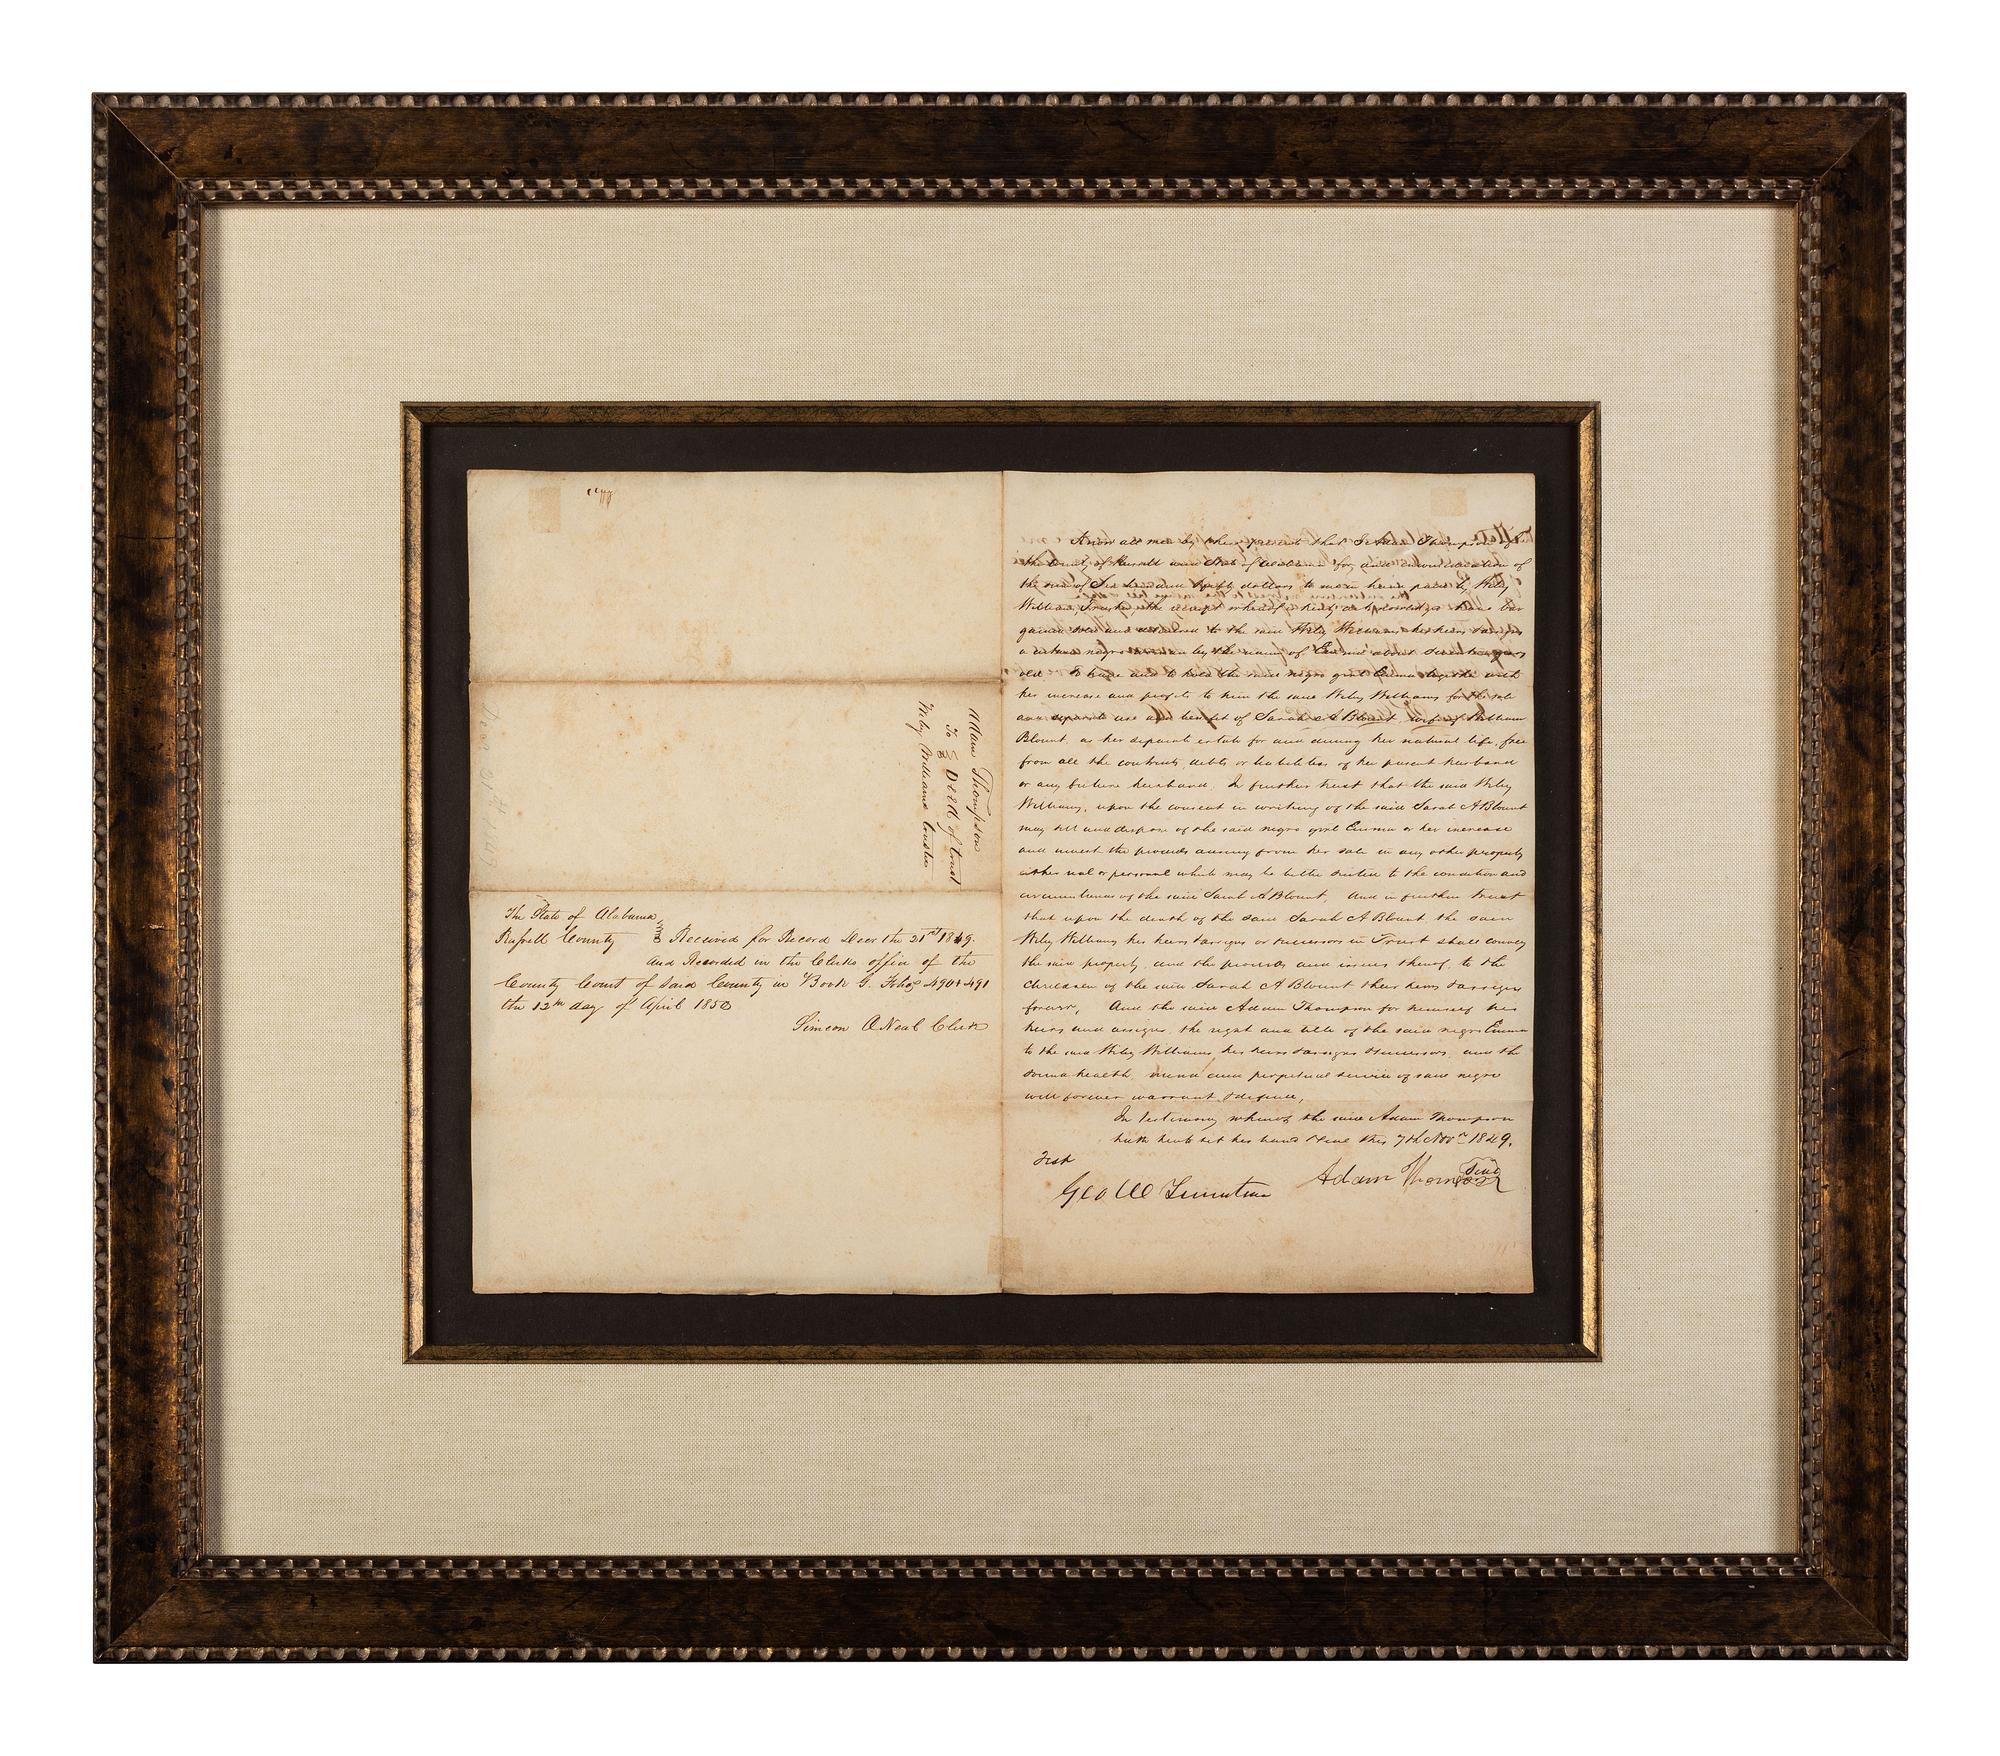 Adam Thompson
To } Deed of trust
Wily Williams trustee
Decr 21st 1849
The State of Alabama
Russell County } Received for Record Decr the 21st 1849.
and Recorded in the Clerks office of the
County Court of Said County in Book G. Folios 490 & 491
the 12th day of April 1850
Simeon O Neal Clerk
Know all men by these presents that I Adam Thompson of
the County of Russell and State of Alabama for and in consideration of
the sum of Six hundred & fifty dollars to me in hand paid by Wily
Williams, Trustee, the receipt whereof is hereby acknowledged have bar
gained sold and delivered to the said Wily Williams his heirs & assigns
a certain negro woman by the name of Emma about Seventeen years
old. To have and to hold the said negro girl Emma together with
her increase and profits to him the said Wily Williams for the sole
and separate use and benefit of Sarah A Blount, wife of William
Blount, as her separate estate for and during her natural life, free
from all the contracts debts or liabilities of her present husband
or any future husband. In further trust that the said Wily
Williams, upon the consent in writing of the said Sarah A Blount
may sell and dispose of the said negro girl Emma or her increase
and invest the proceeds arising from her sale in any other property
either real or personal which may be better suited to the condition and
circumstances of the said Sarah A Blount, And in further Trust
that upon the death of the said Sarah A Blount the said
Wily Williams his heirs & assigns or successors in Trust shall convey
the said property, and the proceeds and issues thereof, to the
children of the said Sarah A Blount their heirs & assigns
forever, And the said Adam Thompson for himself his
heirs and assigns, the right and title of the said negro Emma
to the said Wily Williams, his heirs & assigns & successors, and the
sound health, mind and perpetual service of said negro
will forever warrant & defend,
In testimony whereof the said Adam Thompson
hath hereto set his hand & seal this 7th Novr 1849.
Test
Adam Thompson Seal
Geo W